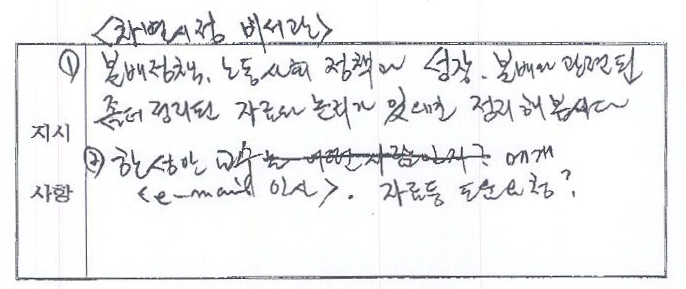 <차별시정 비서관>
① 분배정책, 노동사회 정책과 성장, 분배와 관련된
좀더 정리된 자료와 논리가 있으면 정리해봅시다
지시
② 한성안 교수는 어떤 사람인지? 에게
사항
<e-mail 인사>. 자료등 도움요청?